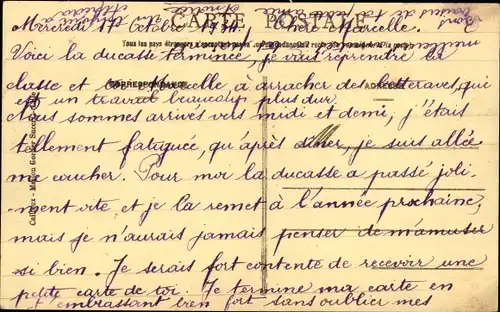 CARTE POSTALE
Mercredi 17 Octobre 1934, Chère Marcelle.
Tous les pays étrangers n'acceptent pas
Voici la ducasse terminée, je vais reprendre la
CORRESPONDANCE
ADRESSE
classe et Marcelle, à arracher des betteraves, qui
est un travail beaucoup plus dur.
Nous sommes arrivés vers midi et demi, j'étais
tellement fatiguée, qu'après dîner, je suis allée
me coucher. Pour moi la ducasse a passé joli-
ment vite et je la remet à l'année prochaine,
mais je n'aurais jamais penser de m'amuser
si bien. Je serais fort contente de recevoir une
petite carte de toi. Je termine ma carte en
t'embrassant bien fort sans oublier mes